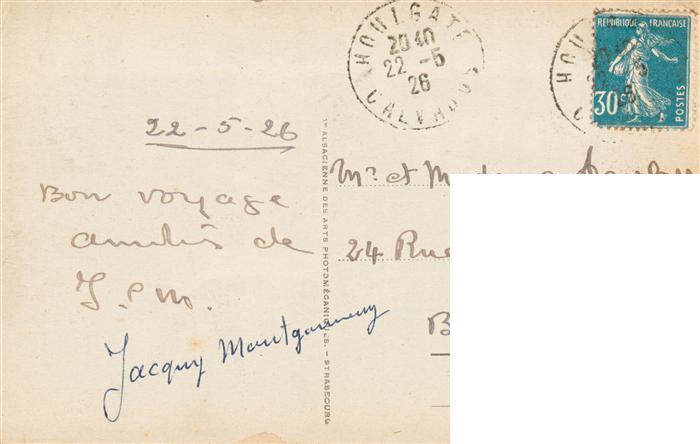 HOULGATE
20 40
22 -5
26
CALVADOS
REPUBLIQUE FRANÇAISE
30c
POSTES
22-5-26
Bon voyage
amitiés de
J. et M.
Jacquy Montgomery
Mr. et
24 Rue
B
Sté ALSACIENNE DES ARTS PHOTOMÉCANIQUES. - STRASBOURG